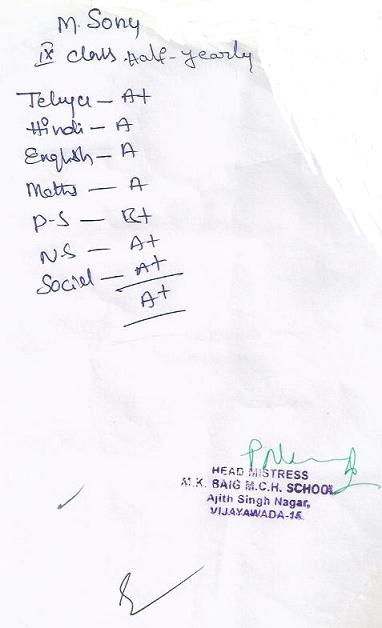 M. Sony
IX class Half-yearly
Telugu - A+
Hindi - A
English - A
Maths - A
P-S - B+
N.S - A+
Social - A+
A+
HEAD MISTRESS
M.K. BAIG M.C.H. SCHOOL
Ajith Singh Nagar,
VIJAYAWADA-15.